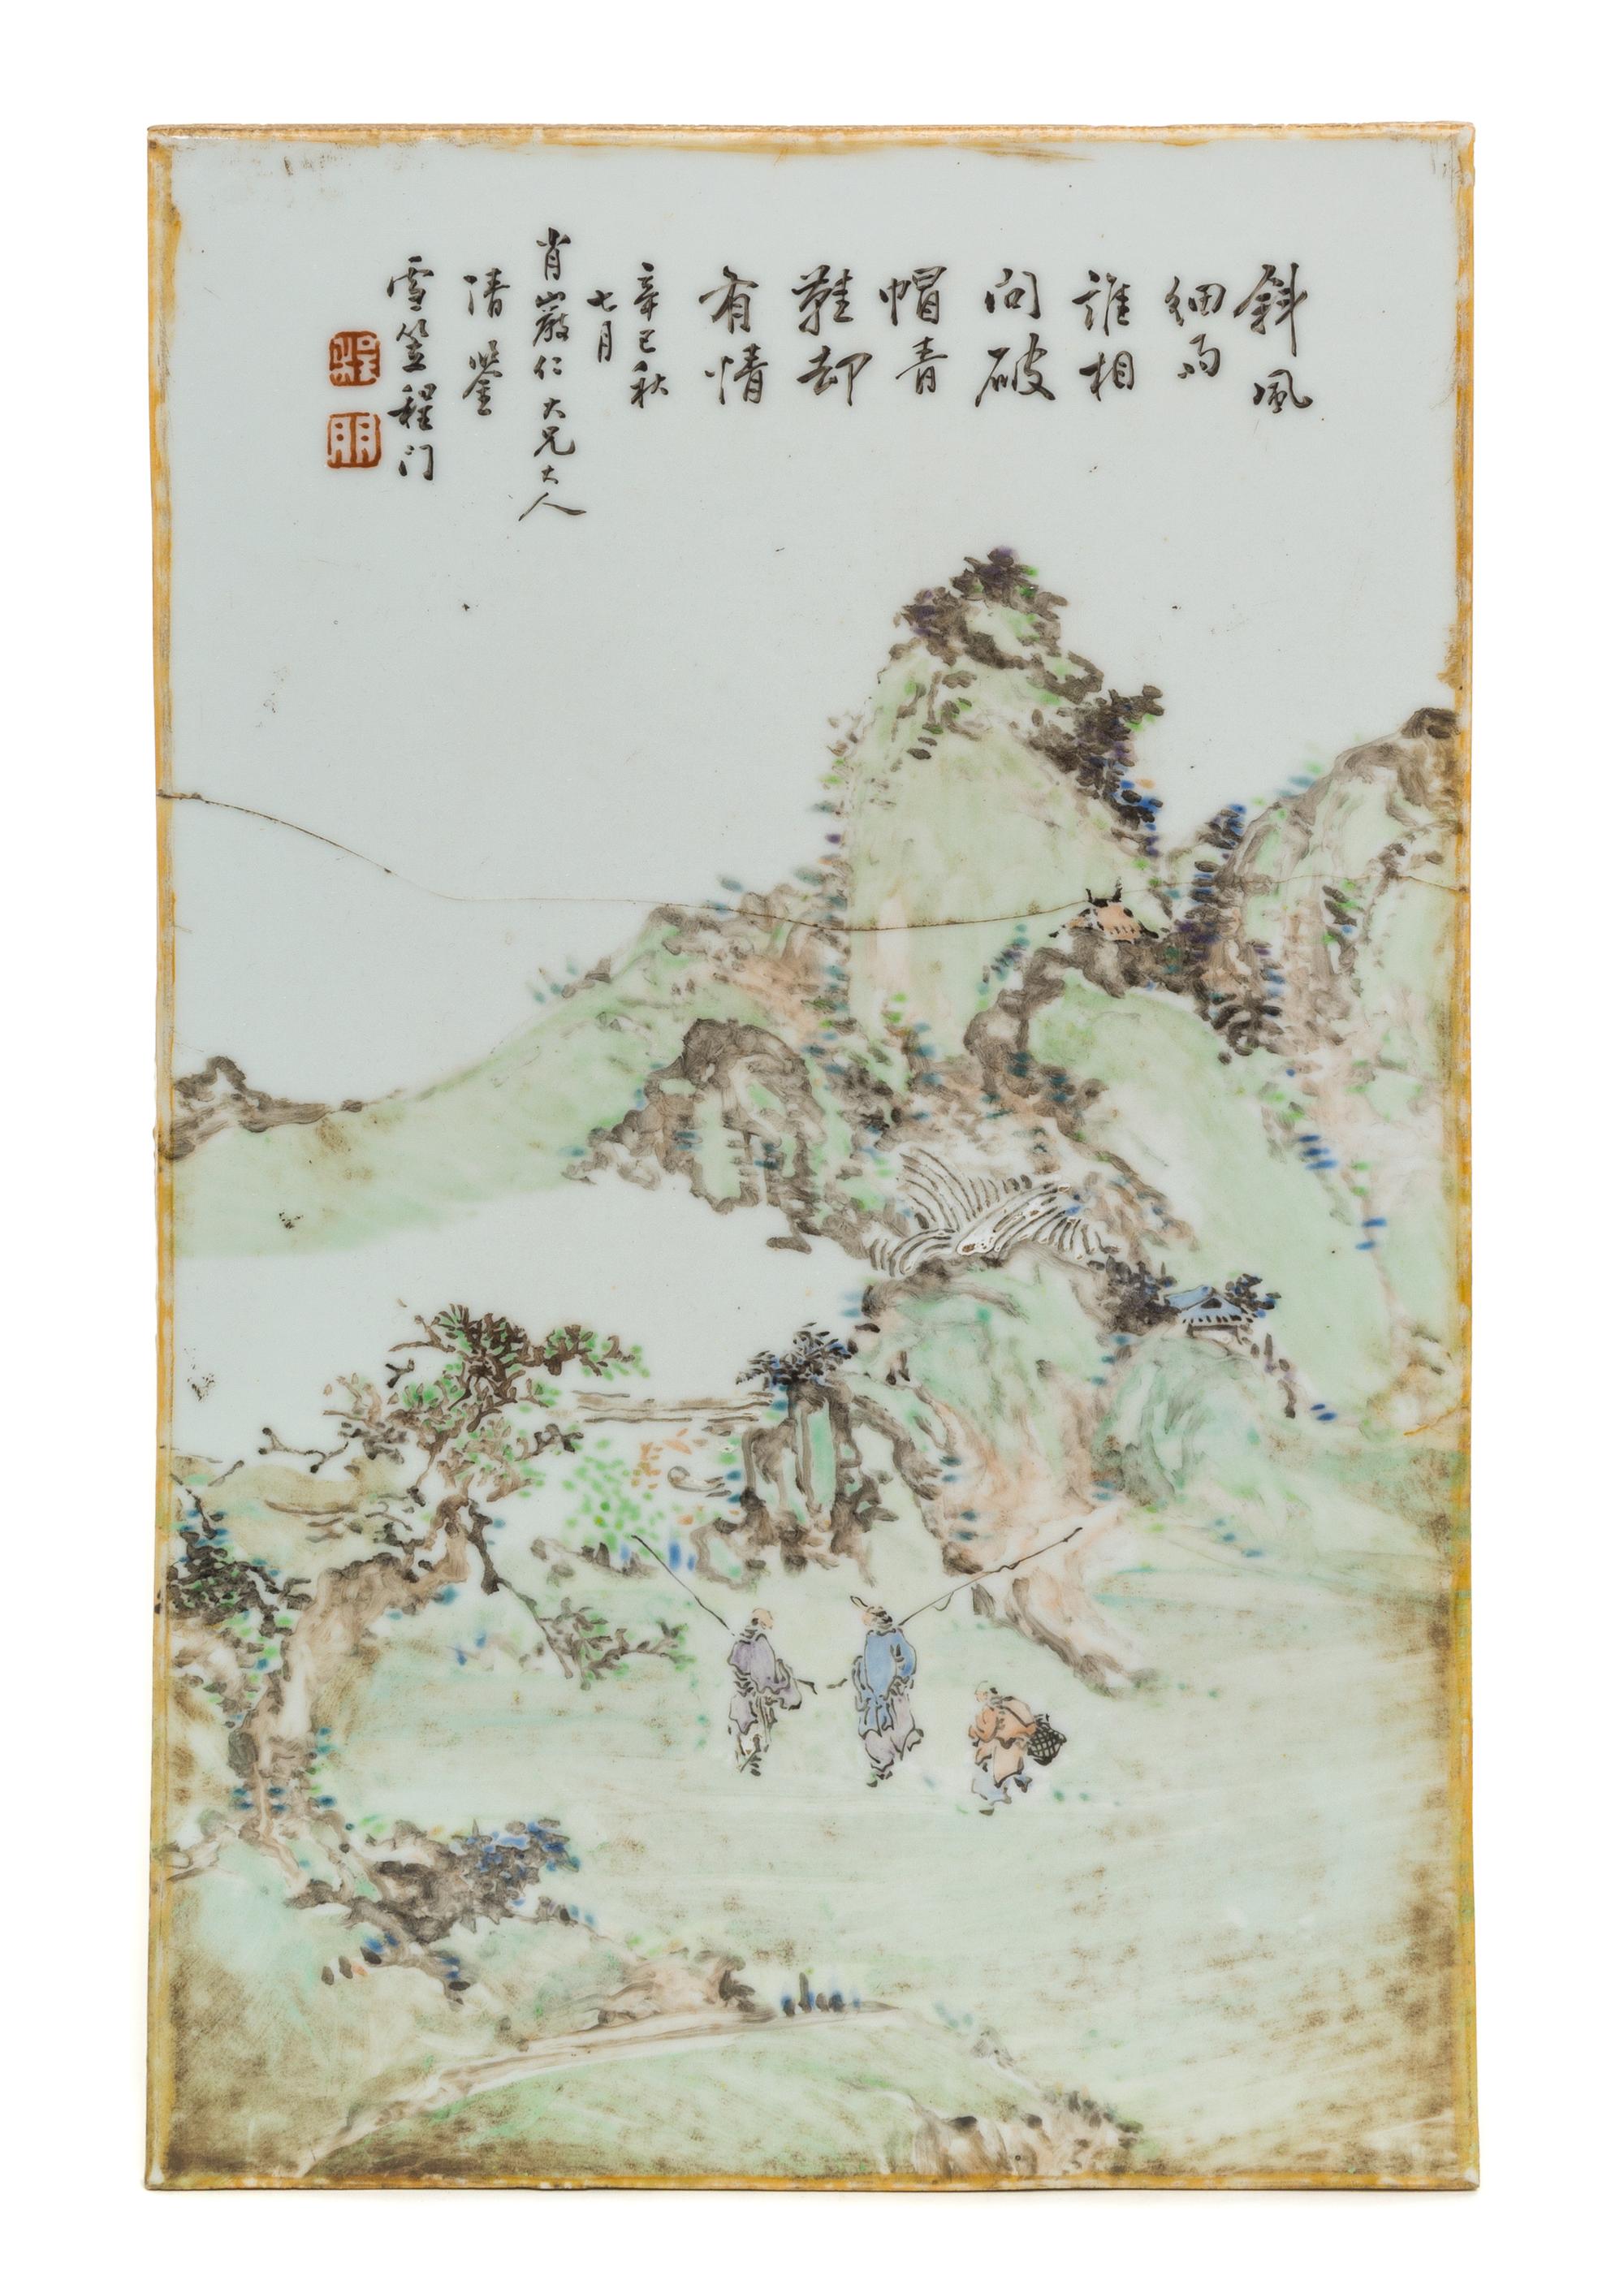 斜風
細雨
誰相
問破
帽青
鞋却
有情
辛巳秋
七月
肖巖仁大兄大人
清鑒
雪笠程门